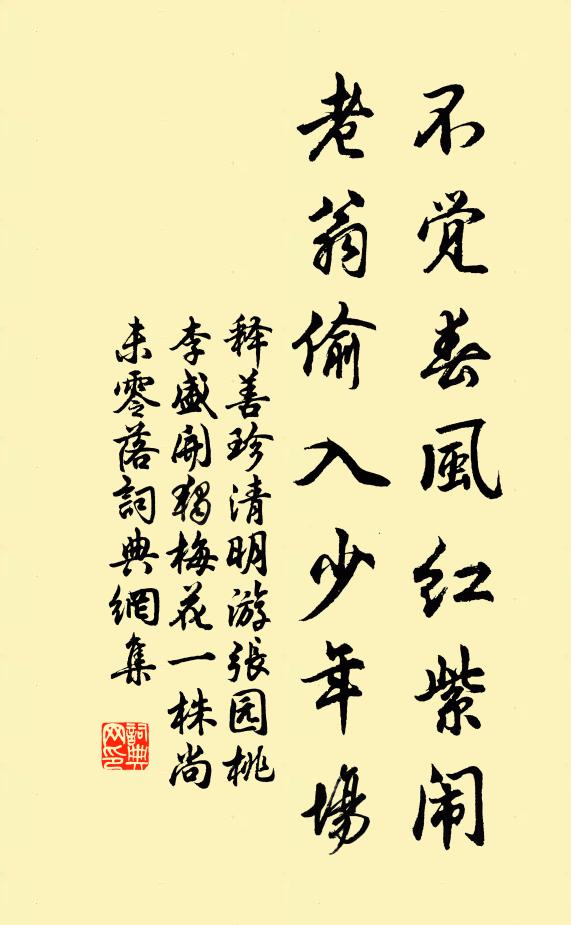 不觉春風红紫闹
老翁偷入少年場
释善珍清明游張园桃
李盛開獨梅花一株尚
未零落詞典網集
詞典
网印